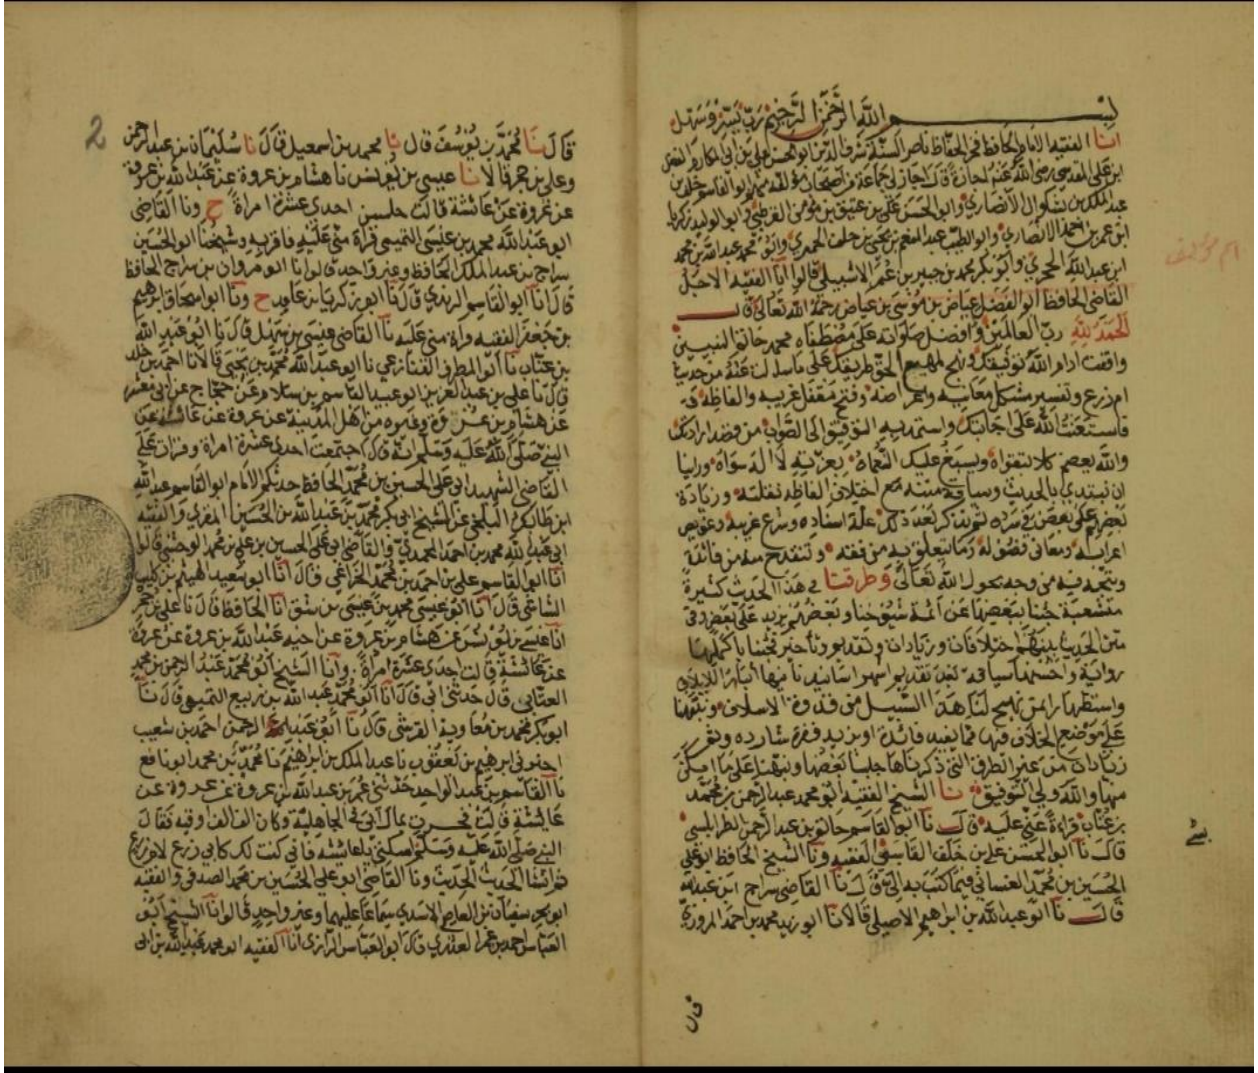 بسم الله الرحمن الرحيم رب يسر وسهل
انا الفقيه الامام الحافظ فخر الحفاظ ناصر السنة شرف الدين ابو الحسن علي بن ابي المكارم المفضل
ابن علي المقدسي رضي الله عنه اجازة قال اجاز لي جماعة من اصحاب مؤلفه منهم ابو القاسم خلف بن
عبد الملك بن بشكوال الانصاري وابو الحسن علي بن عتيق بن مؤمن القرطبي وابو الوليد زكريا
ابن عمر بن احمد الانصاري وابو الطيب عبد المنعم بن يحيى بن خلف الحميري وابو محمد عبد الله بن محمد
ابن عبد الله الحجري وابو بكر محمد بن جبير بن عمر الاشبيلي قالوا انا الفقيه الاجل
القاضي الحافظ ابو الفضل عياض بن موسى بن عياض رحمة الله تعالى قال
الحمد لله رب العالمين وافضل صلواته على مصطفاه محمد خاتم النبيين
وافقت ادام الله توفيقك ونهج لمهيع الحق طريقك على ما سالت عنه من حديث
ام زرع وتفسير مشكل معانيه وفتح مقفل غريبه والفاظه
فاستعنت الله على اجابتك واستمد به التوفيق الى الصواب من قصد ارادتك
والله يعصم كلا بتقواه ويسبغ عليك النعماه بعزته لا اله سواه وراينا
ان نبتدي بالحديث وسياقه متنه مع اختلاف الفاظه نقلته وزيادة
بعضهم على بعض في سرده ثم نذكر بعد ذلك علة اسناده وشرح غريبه وعويص
اعرابه ومعاني فصوله وما يتعلق به من فقه وتنقدح منه من فائدة
ويتجه فيه من وجه بحول الله تعالى وطرقنا في هذا الحديث كثيرة
متشعبة حدثنا ببعضها عن ائمة شيوخنا وبعضهم يزيد على بعض وفي
متن الحديث بينهم اختلافات وزيادات
رواية واحسنها سياقة بعد تقديم اشهر اسانيدنا فيها
واستظهارا بمن نهج لنا هذا السبيل من قدوة الاسلاف وننبهنا
على موضع الخلاف فيها مما يفيد فائدة او يزيد فقرة شارده
زيادات من غير الطرق التي ذكرناها جلبنا بعضها ونبهنا على ما امكن
منها والله ولي التوفيق نا الشيخ الفقيه ابو محمد عبد الرحمن بن محمد
بن عتاب قراءة عني عليه قال نا ابو القاسم حاتم بن عبد الرحمن الطرابلسي
قال نا ابو الحسن علي بن خلف القابسي الفقيه ونا الشيخ الحافظ ابو علي
الحسين بن محمد الغساني فيما كتب به الي قال نا القاضي سراج ابن عبد الله
قال نا ابو عبد الله بن ابراهيم الاصيلي قالا نا ابو زيد محمد بن احمد المروزي
قال
2
قال نا محمد بن يوسف قال نا محمد بن اسمعيل قال نا سليمان بن عبد الرحمن
وعلي بن حجر قالا نا عيسى بن يونس نا هشام بن عروة عن عبد الله بن عروة
عن عروة عن عائشة قالت جلس احدى عشرة امراة ح ونا القاضي
ابو عبد الله محمد بن عيسى التميمي قراة مني عليه فاقر به وشيخنا ابو الحسين
سراج بن عبد الملك الحافظ وغير واحد قالوا نا ابو مروان بن سراج الحافظ
قال نا ابو القاسم الزيدي قال نا ابو زكريا بن عايذ ح ونا ابو اسحاق ابرهيم
بن جعفر الفقيه قراة مني عليه نا القاضي عيسى بن سهل قال نا ابو عبد الله
بن عتاب نا ابو المطرف القنازعي نا ابو عبد الله محمد بن يحيى قالا نا احمد بن خلد
قال نا علي بن عبد العزيز نا ابو عبيد القاسم بن سلام عن حجاج عن ابي معشر
عن هشام بن عروة وغيره من اهل المدينة عن عروة عن عائشة عن
النبي صلى الله عليه وسلم انه قال اجتمعت احدى عشرة امراة وقرات على
القاضي الشهيد ابي علي الحسين بن محمد الحافظ حدثكم الامام ابو القاسم عبد الله
ابن طاهر البلخي عن الشيخ ابي بكر محمد بن عبد الله بن الحسين المقري والفقيه
ابي عبد الله محمد بن احمد المحمدي والقاضي ابي علي الحسين بن علي بن محمد الوخشي قالوا
انا ابو القاسم علي بن احمد بن محمد الخزاعي قال انا ابو سعيد الهيثم بن كليب
الشاشي قال نا ابو عيسى محمد بن عيسى بن سورة الحافظ قال نا علي بن حجر
انا عيسى بن يونس عن هشام بن عروة عن اخيه عبد الله بن عروة عن عروة
عن عائشة قالت احدى عشرة امراة ونا الشيخ ابو محمد عبد الرحمن بن محمد
العتابي قال حدثني ابي قال نا ابو محمد عبد الله بن ربيع التميمي قال نا
ابو بكر محمد بن معاوية القرشي قال نا ابو عبد الرحمن احمد بن شعيب
اخبرني ابرهيم بن يعقوب نا عبد الملك بن ابرهيم نا محمد بن محمد ابو نافع
نا القاسم بن عبد الواحد حدثني عمر بن عبد الله بن عروة عن عروة عن
عائشة قالت فخرت بمال ابي في الجاهلية وكان الف الف اوقيه فقال
النبي صلى الله عليه وسلم اسكتي يا عائشه فاني كنت لك كابي زرع لام زرع
ثم انشا الحديث الحديث ونا القاضي ابو علي الحسين بن محمد الصدفي والفقيه
ابو بحر سفيان بن العاصي الاسدي سماعا عليهما وغير واحد قالوا نا الشيخ ابو
العباس احمد بن عمر العذري قال نا ابو العباس الرازي انا الفقيه ابو محمد عبد الله بن ابي